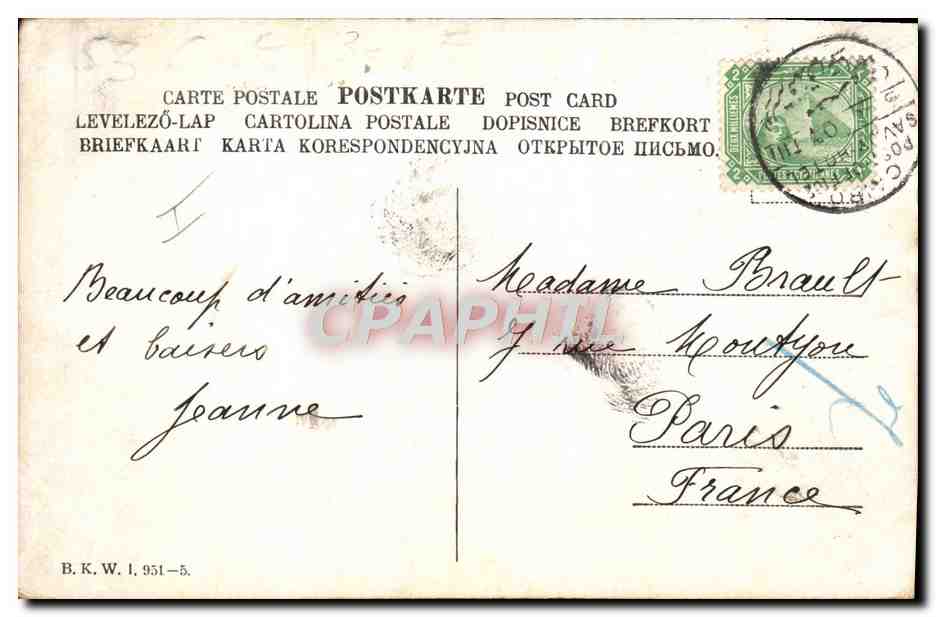 CARTE POSTALE POSTKARTE POST CARD
LEVELEZŐ-LAP CARTOLINA POSTALE DOPISNICE BREFKORT
BRIEFKAART KARTA KORESPONDENCYJNA ОТКРЫТОЕ ПИСЬМО.
2 2
DEUX MILLIEMES
2
CAIRO
Beaucoup d'amitiés
et baisers
Jeanne
Madame Brault
7 rue Montyon
Paris
France
CPAPHIL
B. K. W. I, 951-5.